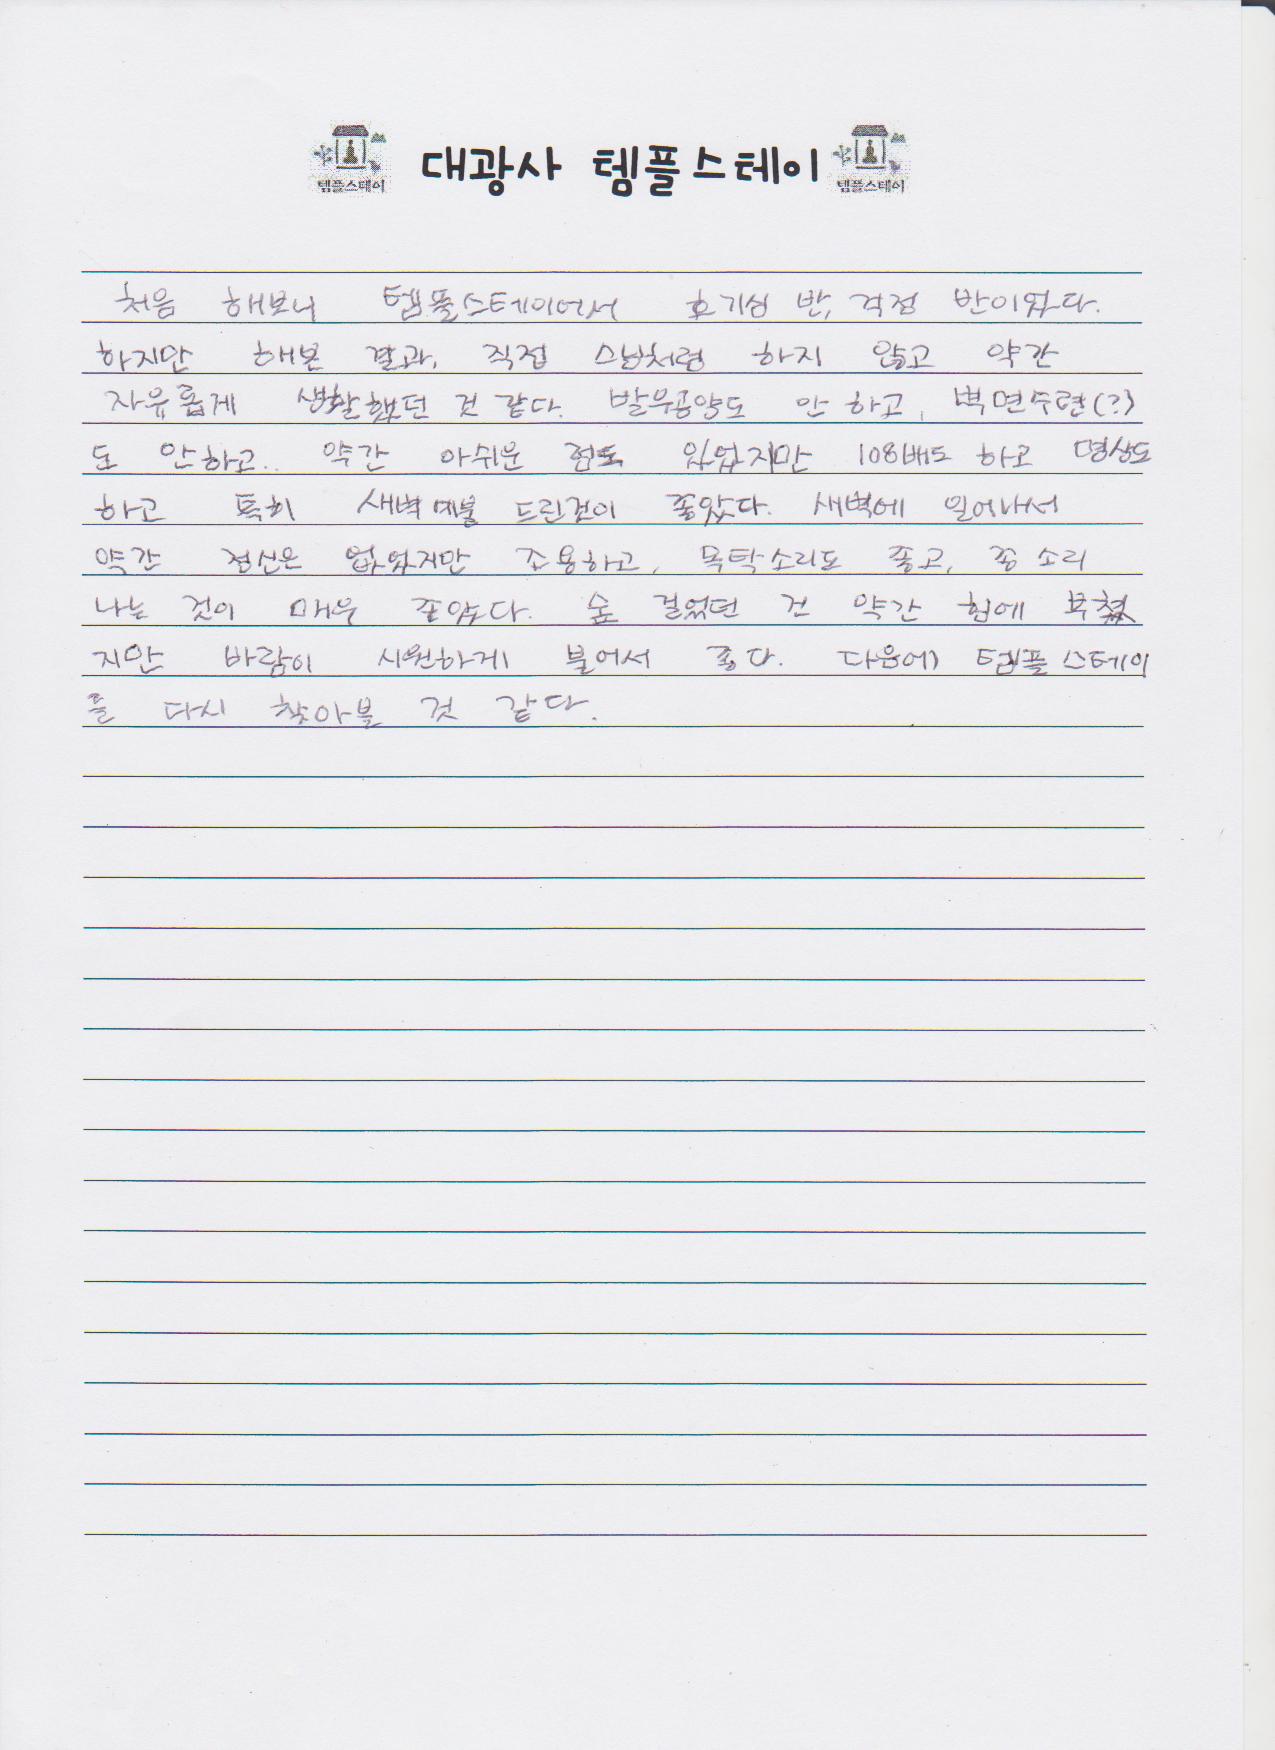 템플스테이 대광사 템플스테이 템플스테이
처음 해보니 템플스테이어서 호기심 반, 걱정 반이었다.
하지만 해본 결과, 직접 스님처럼 하지 않고 약간
자유롭게 생활했던 것 같다. 발우공양도 안 하고, 벽면수련(?)
도 안하고.. 약간 아쉬운 점도 있었지만 108배도 하고 명상도
하고 특히 새벽예불 드린것이 좋았다. 새벽에 일어나서
약간 정신은 없었지만 조용하고, 목탁소리도 좋고, 종 소리
나는 것이 매우 좋았다. 숲 걸었던 건 약간 힘에 부쳤
지만 바람이 시원하게 불어서 좋다. 다음에 템플스테이
를 다시 찾아볼 것 같다.